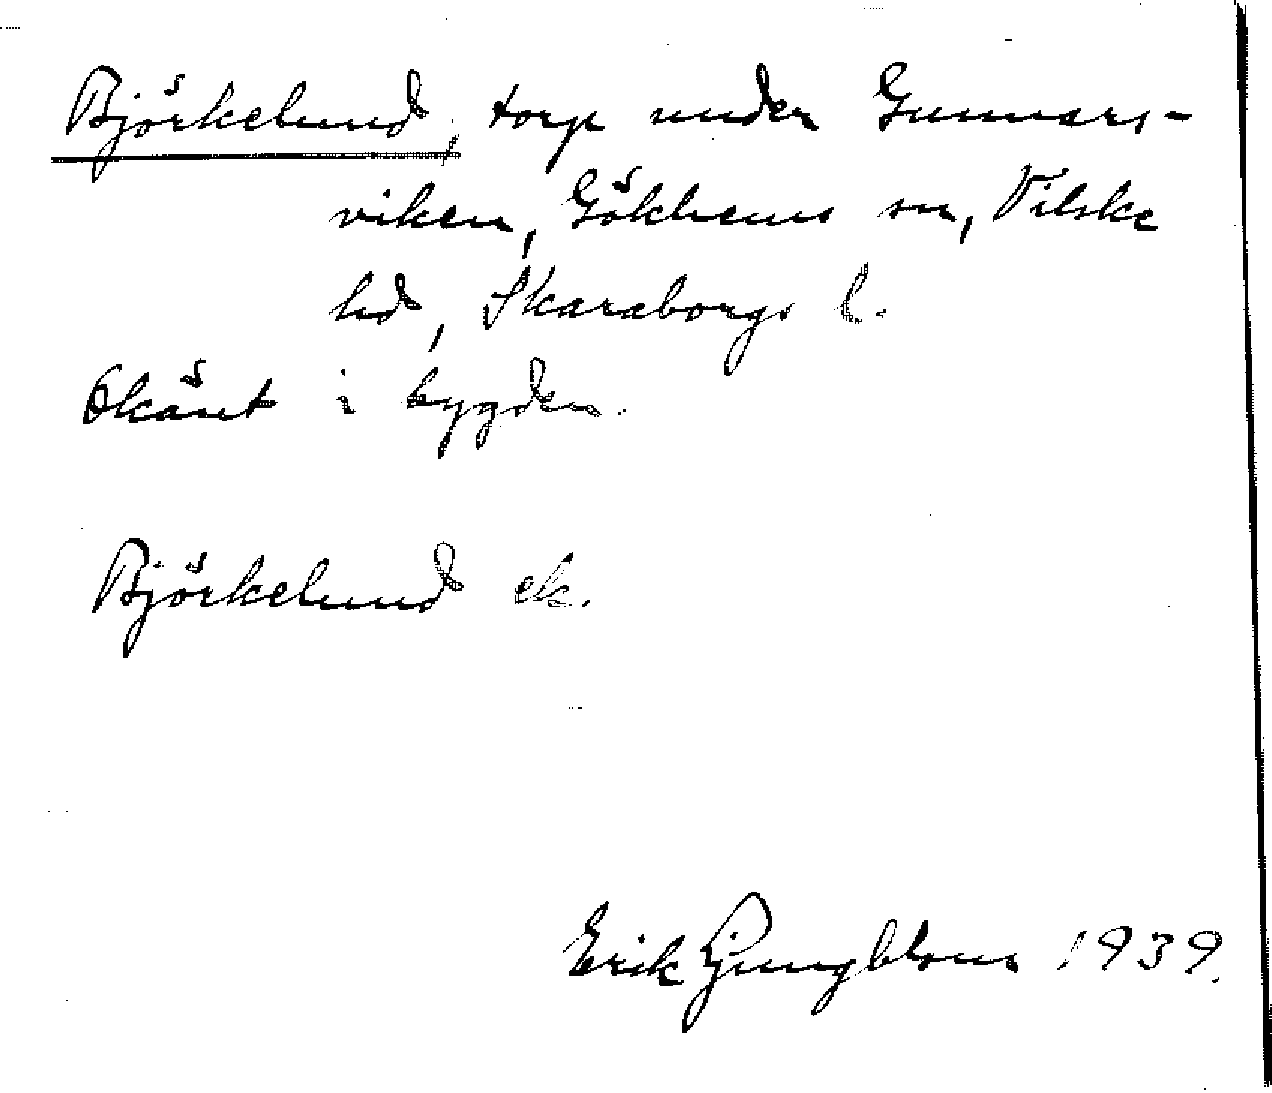 Björkelund, torp under Gunnars-
viken, Gökhems sn, Vilske
hd, Skaraborgs l.
Okänt i bygden.
Björkelund ek.
Erik Ljungblom 1939.